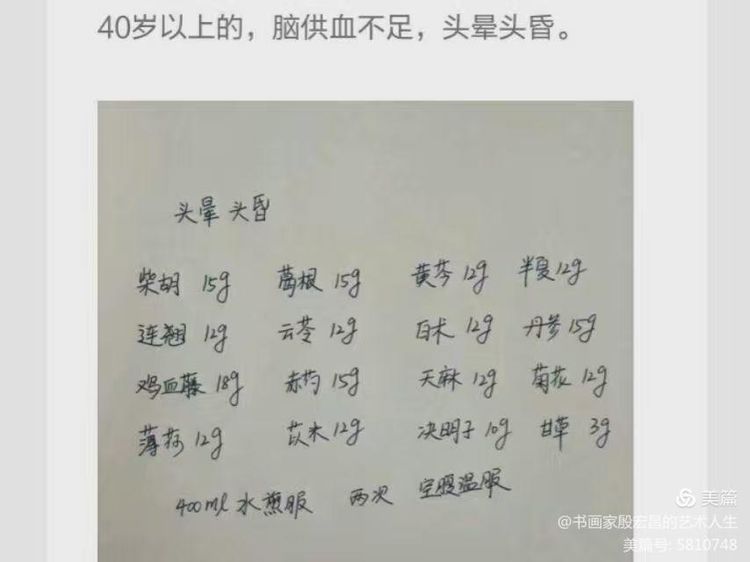 40岁以上的，脑供血不足，头晕头昏。
头晕 头昏
柴胡 15g 葛根 15g 黄芩 12g 半夏 12g
连翘 12g 云苓 12g 白术 12g 丹参 15g
鸡血藤 18g 赤芍 15g 天麻 12g 菊花 12g
薄荷 12g 苡米 12g 决明子 10g 甘草 3g
400ml 水煎服 两次 空腹温服
美篇
@书画家殷宏昌的艺术人生
美篇号: 5810748